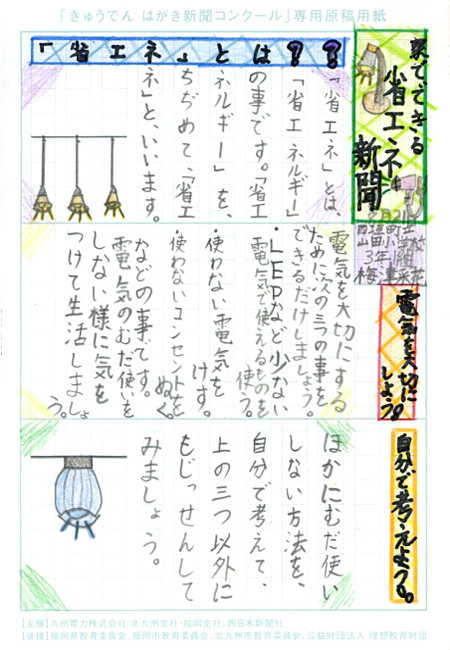 「きゅうでん はがき新聞コンクール」専用原稿用紙
家でできる
省エネ
新聞
3年1組
「省エネ」とは??
「省エネ」とは、
「省エネルギー」
の事です。「省エ
ネルギー」を、
ちぢめて、「省エ
ネ」と、いいます。
電気を大切にしよう。
電気を大切にする
ために次の三つの事を
できるだけしましょう。
・LEDなど少ない
電気で使えるものを
使う。
・使わない電気を
けす。
・使わないコンセントを
ぬく。
などの事です。
電気のむだ使いを
しない様に気を
つけて生活しましょ
う。
自分で考えよう。
ほかにむだ使い
しない方法を、
自分で考えて、
上の三つ以外に
もじっせんして
みましょう。
【主催】九州電力株式会社 北九州支社・福岡支社、西日本新聞社
【後援】福岡県教育委員会、福岡市教育委員会、北九州市教育委員会、公益財団法人 理想教育財団